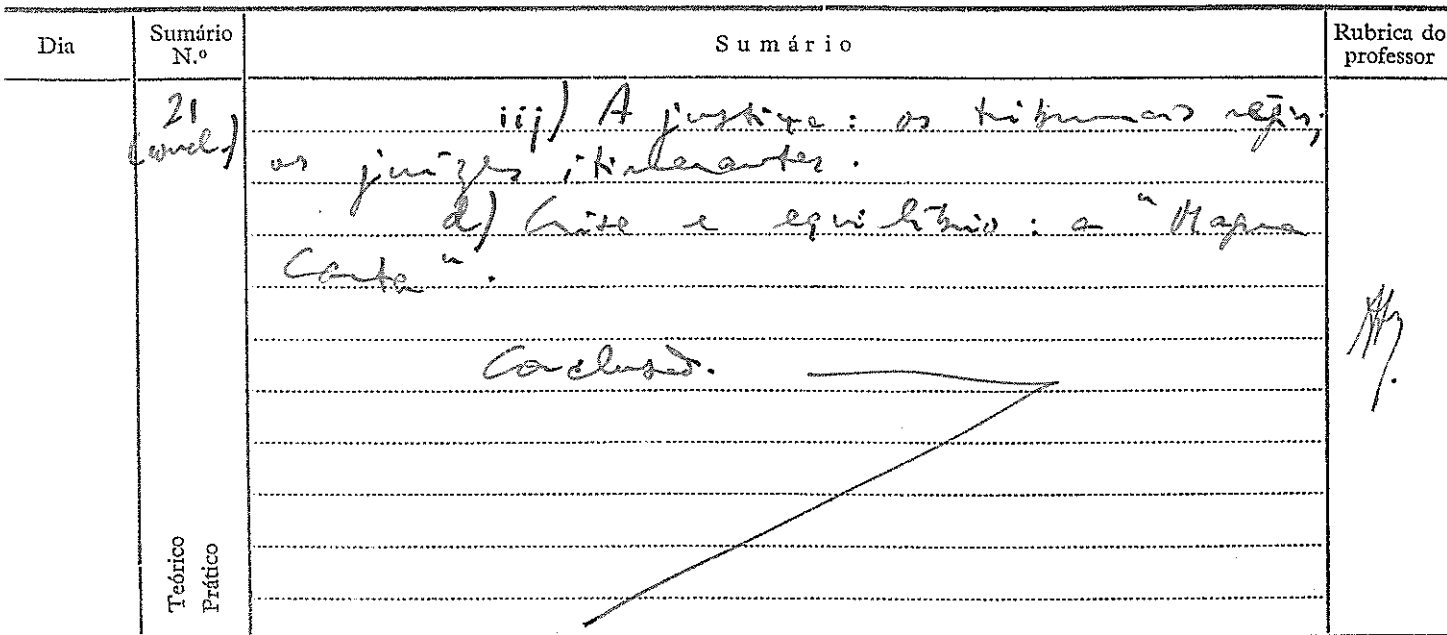 Dia
Sumário N.º
Sumário
Rubrica do professor
21
(concl.)
iii) A justiça: os tribunais régios;
os juízes itinerantes.
d) Crise e equilíbrio: a "Magna
Carta".
Conclusão.
Teórico
Prático